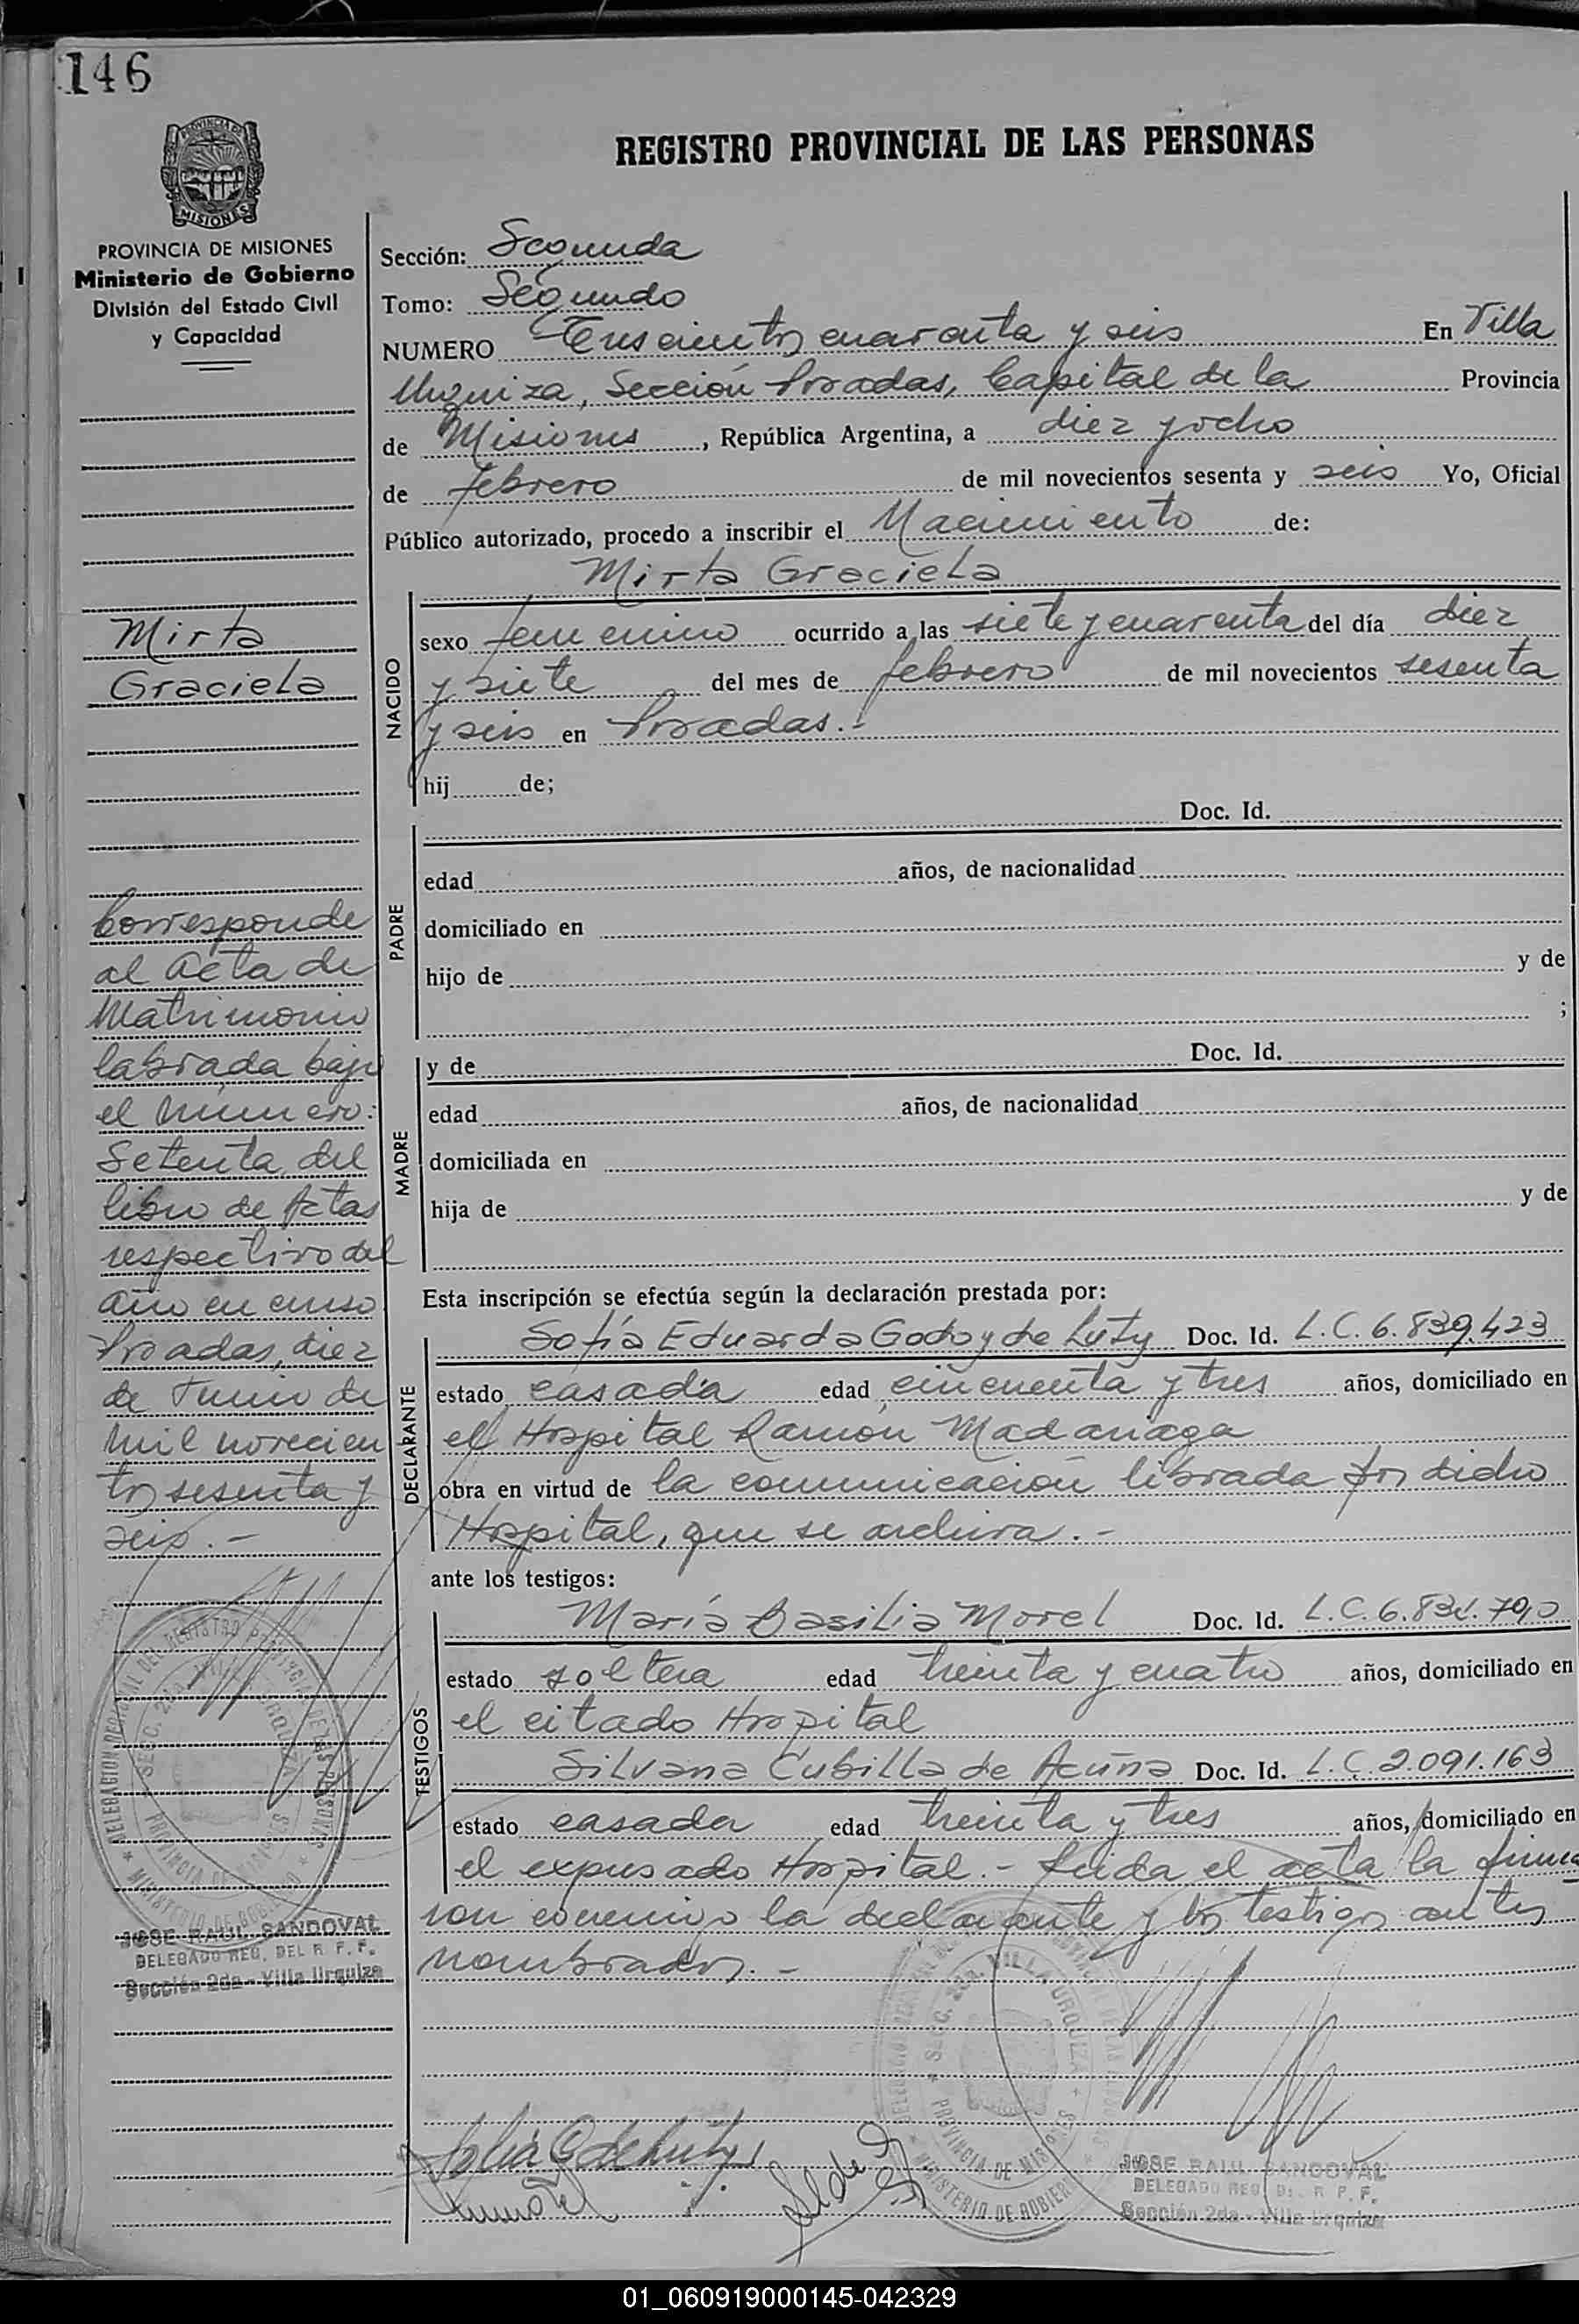 146
REGISTRO PROVINCIAL DE LAS PERSONAS
PROVINCIA DE MISIONES
MISIONES
PROVINCIA DE MISIONES
Ministerio de Gobierno
División del Estado Civil
y Capacidad
Mirta
Graciela
Corresponde
al acta de
Matrimonio
labrada bajo
el número:
Setenta del
libro de Actas
respectivo del
año en curso
Posadas, diez
de Junio de
mil novecien
tos sesenta y
seis.-
JOSE RAUL SANDOVAL
DELEGADO REG. DEL R. P. P.
Sección 2da - Villa Urquiza
Sección: Segunda
Tomo: Segundo
NUMERO Trescientos cuarenta y seis En Villa
Urquiza, Sección Posadas, Capital de la Provincia
de Misiones, República Argentina, a diez y ocho
de febrero de mil novecientos sesenta y seis Yo, Oficial
Público autorizado, procedo a inscribir el Nacimiento de:
Mirta Graciela
NACIDO
sexo femenino ocurrido a las siete y cuarenta del día diez
y siete del mes de febrero de mil novecientos sesenta
y seis en Posadas.-
hij de;
Doc. Id.
PADRE
edad años, de nacionalidad
domiciliado en
hijo de y de
;
MADRE
y de Doc. Id.
edad años, de nacionalidad
domiciliada en
hija de y de
Esta inscripción se efectúa según la declaración prestada por:
DECLARANTE
Sofía Eduarda Godoy de Luty Doc. Id. L.C. 6.839.423
estado casada edad cincuenta y tres años, domiciliado en
el Hospital Ramón Madariaga
obra en virtud de la comunicación librada por dicho
Hospital, que se archiva.-
ante los testigos:
TESTIGOS
María Basilia Morel Doc. Id. L.C. 6.
estado soltera edad treinta y cuatro años, domiciliado en
el citado Hospital
Silvana Cubilla de Acuña Doc. Id. L.C. 2.091.163
estado casada edad treinta y tres años, domiciliado en
el expresado Hospital.- Leida el acta la firma
ron conmigo la declarante y los testigos antes
nombrados.-
JOSE RAUL SANDOVAL
DELEGADO REG. DEL R. P. P.
Sección 2da - Villa Urquiza
01_060919000145-042329